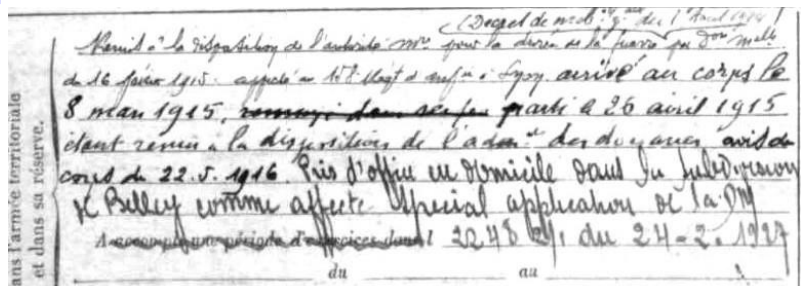 (Decret de mob. g.ale du 1er Aout 1914)
Remis à la disposition de l'autorité mre pour la durée de la guerre par don melle
du 16 février 1915. appelé au 158e Regt d' infie à Lyon arrivé au corps le
8 mars 1915, renvoyé dans ses foyers parti le 26 avril 1915
étant remis à la disposition de l'adon des douanes avis du
corps du 22.5.1916. Pris d'office en domicile dans la subdivision
de Belley comme affecté spécial application de la DM
A accompli une période d'exercices dans l 2248 2/1 du 24-2.1927
du au
ans l'armée territoriale
et dans sa réserve.